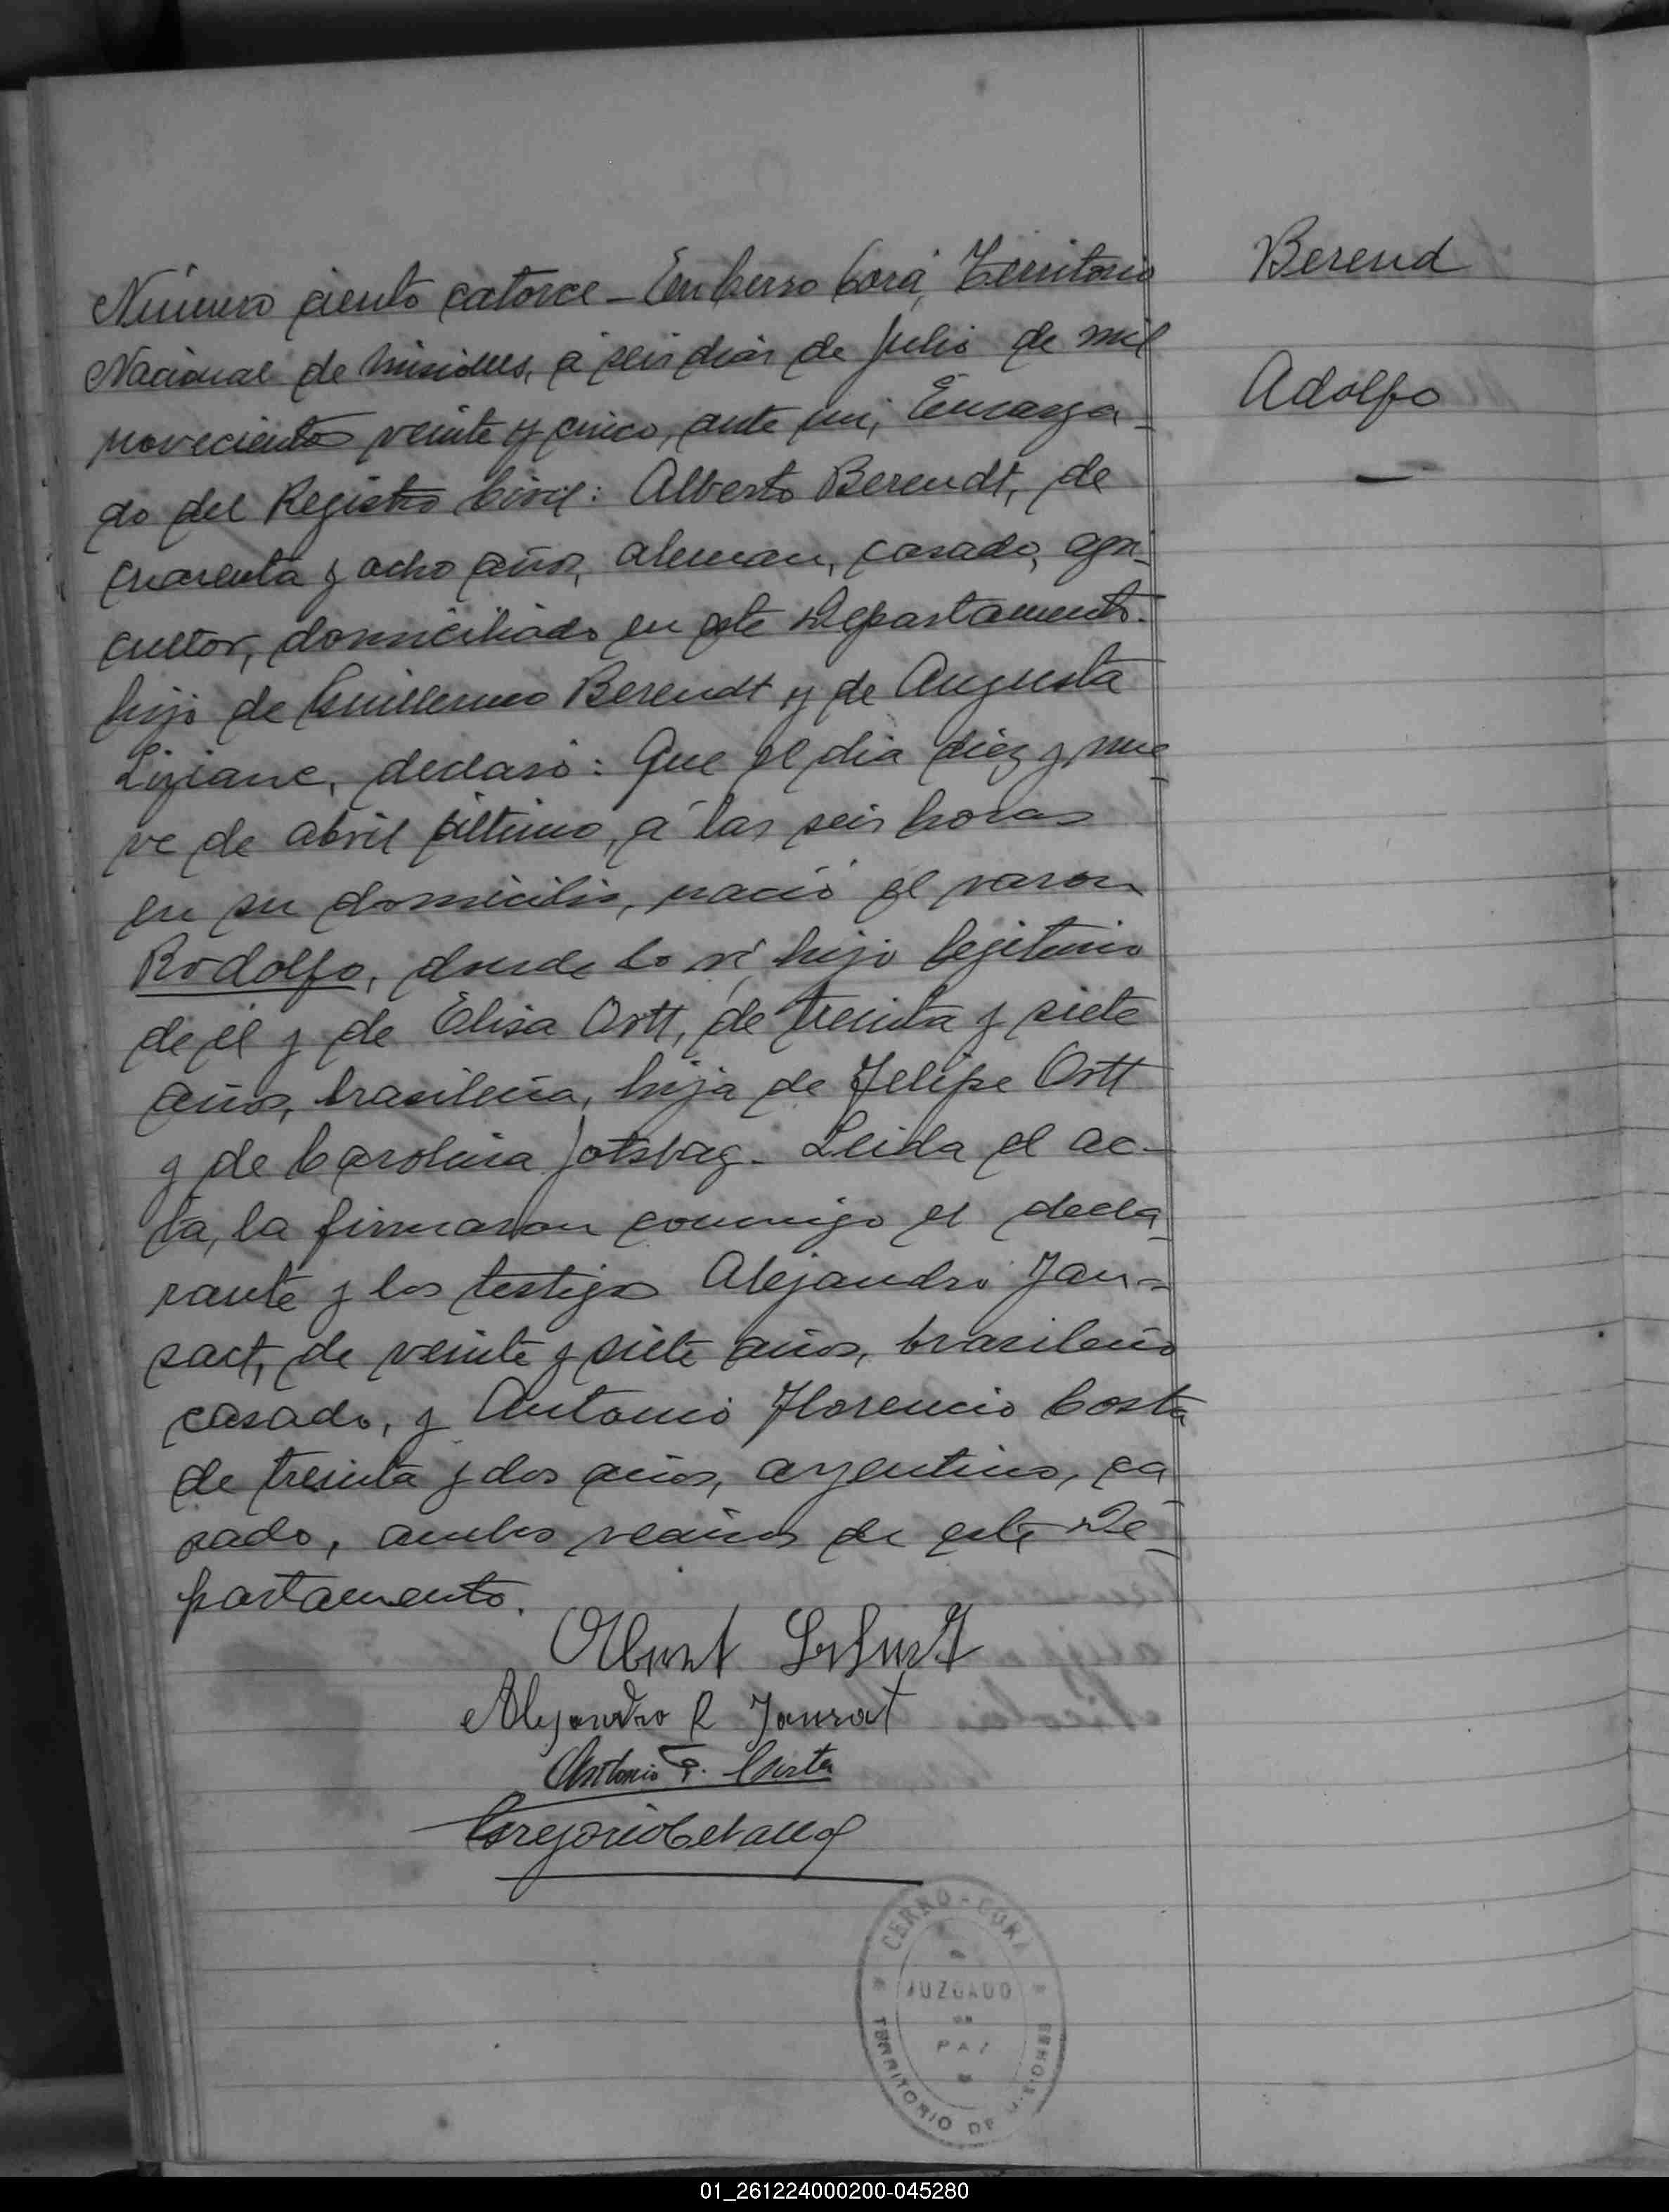 Berend
Adolfo
Número ciento catorce - En Cerro Corá, Territorio
Nacional de Misiones, á seis dias de Julio de mil
novecientos veinte y cinco, ante mi, Encarga-
do del Registro Civil: Alberto Berendt, de
cuarenta y ocho años, aleman, casado, agri-
cultor, domiciliado en este Departamento.
hijo de Guillermo Berendt y de Augusta
declaró: Que el dia diez y nue-
ve de abril último, á las seis horas
en su domicilio, nació el varon
Rodolfo, donde lo ví, hijo legitimo
de él y de Elisa Ortt, de treinta y siete
años, brasileña, hija de Felipe Ortt
y de Carolina Jotsbag. Leida el ac-
ta, la firmaron conmigo el decla-
rante y los testigos Alejandro Jan-
sact, de veinte y siete años, brasileño
casado, y Antonio Florencio Costa
de treinta y dos años, argentino, ca-
sado, ambos vecinos de este De-
partamento.
Albert
Alejandro R Jansat
Antonio F. Costa
Gregorio
CERRO-CORA
JUZGADO
DE
PAZ
TERRITORIO DE MISIONES
01_261224000200-045280